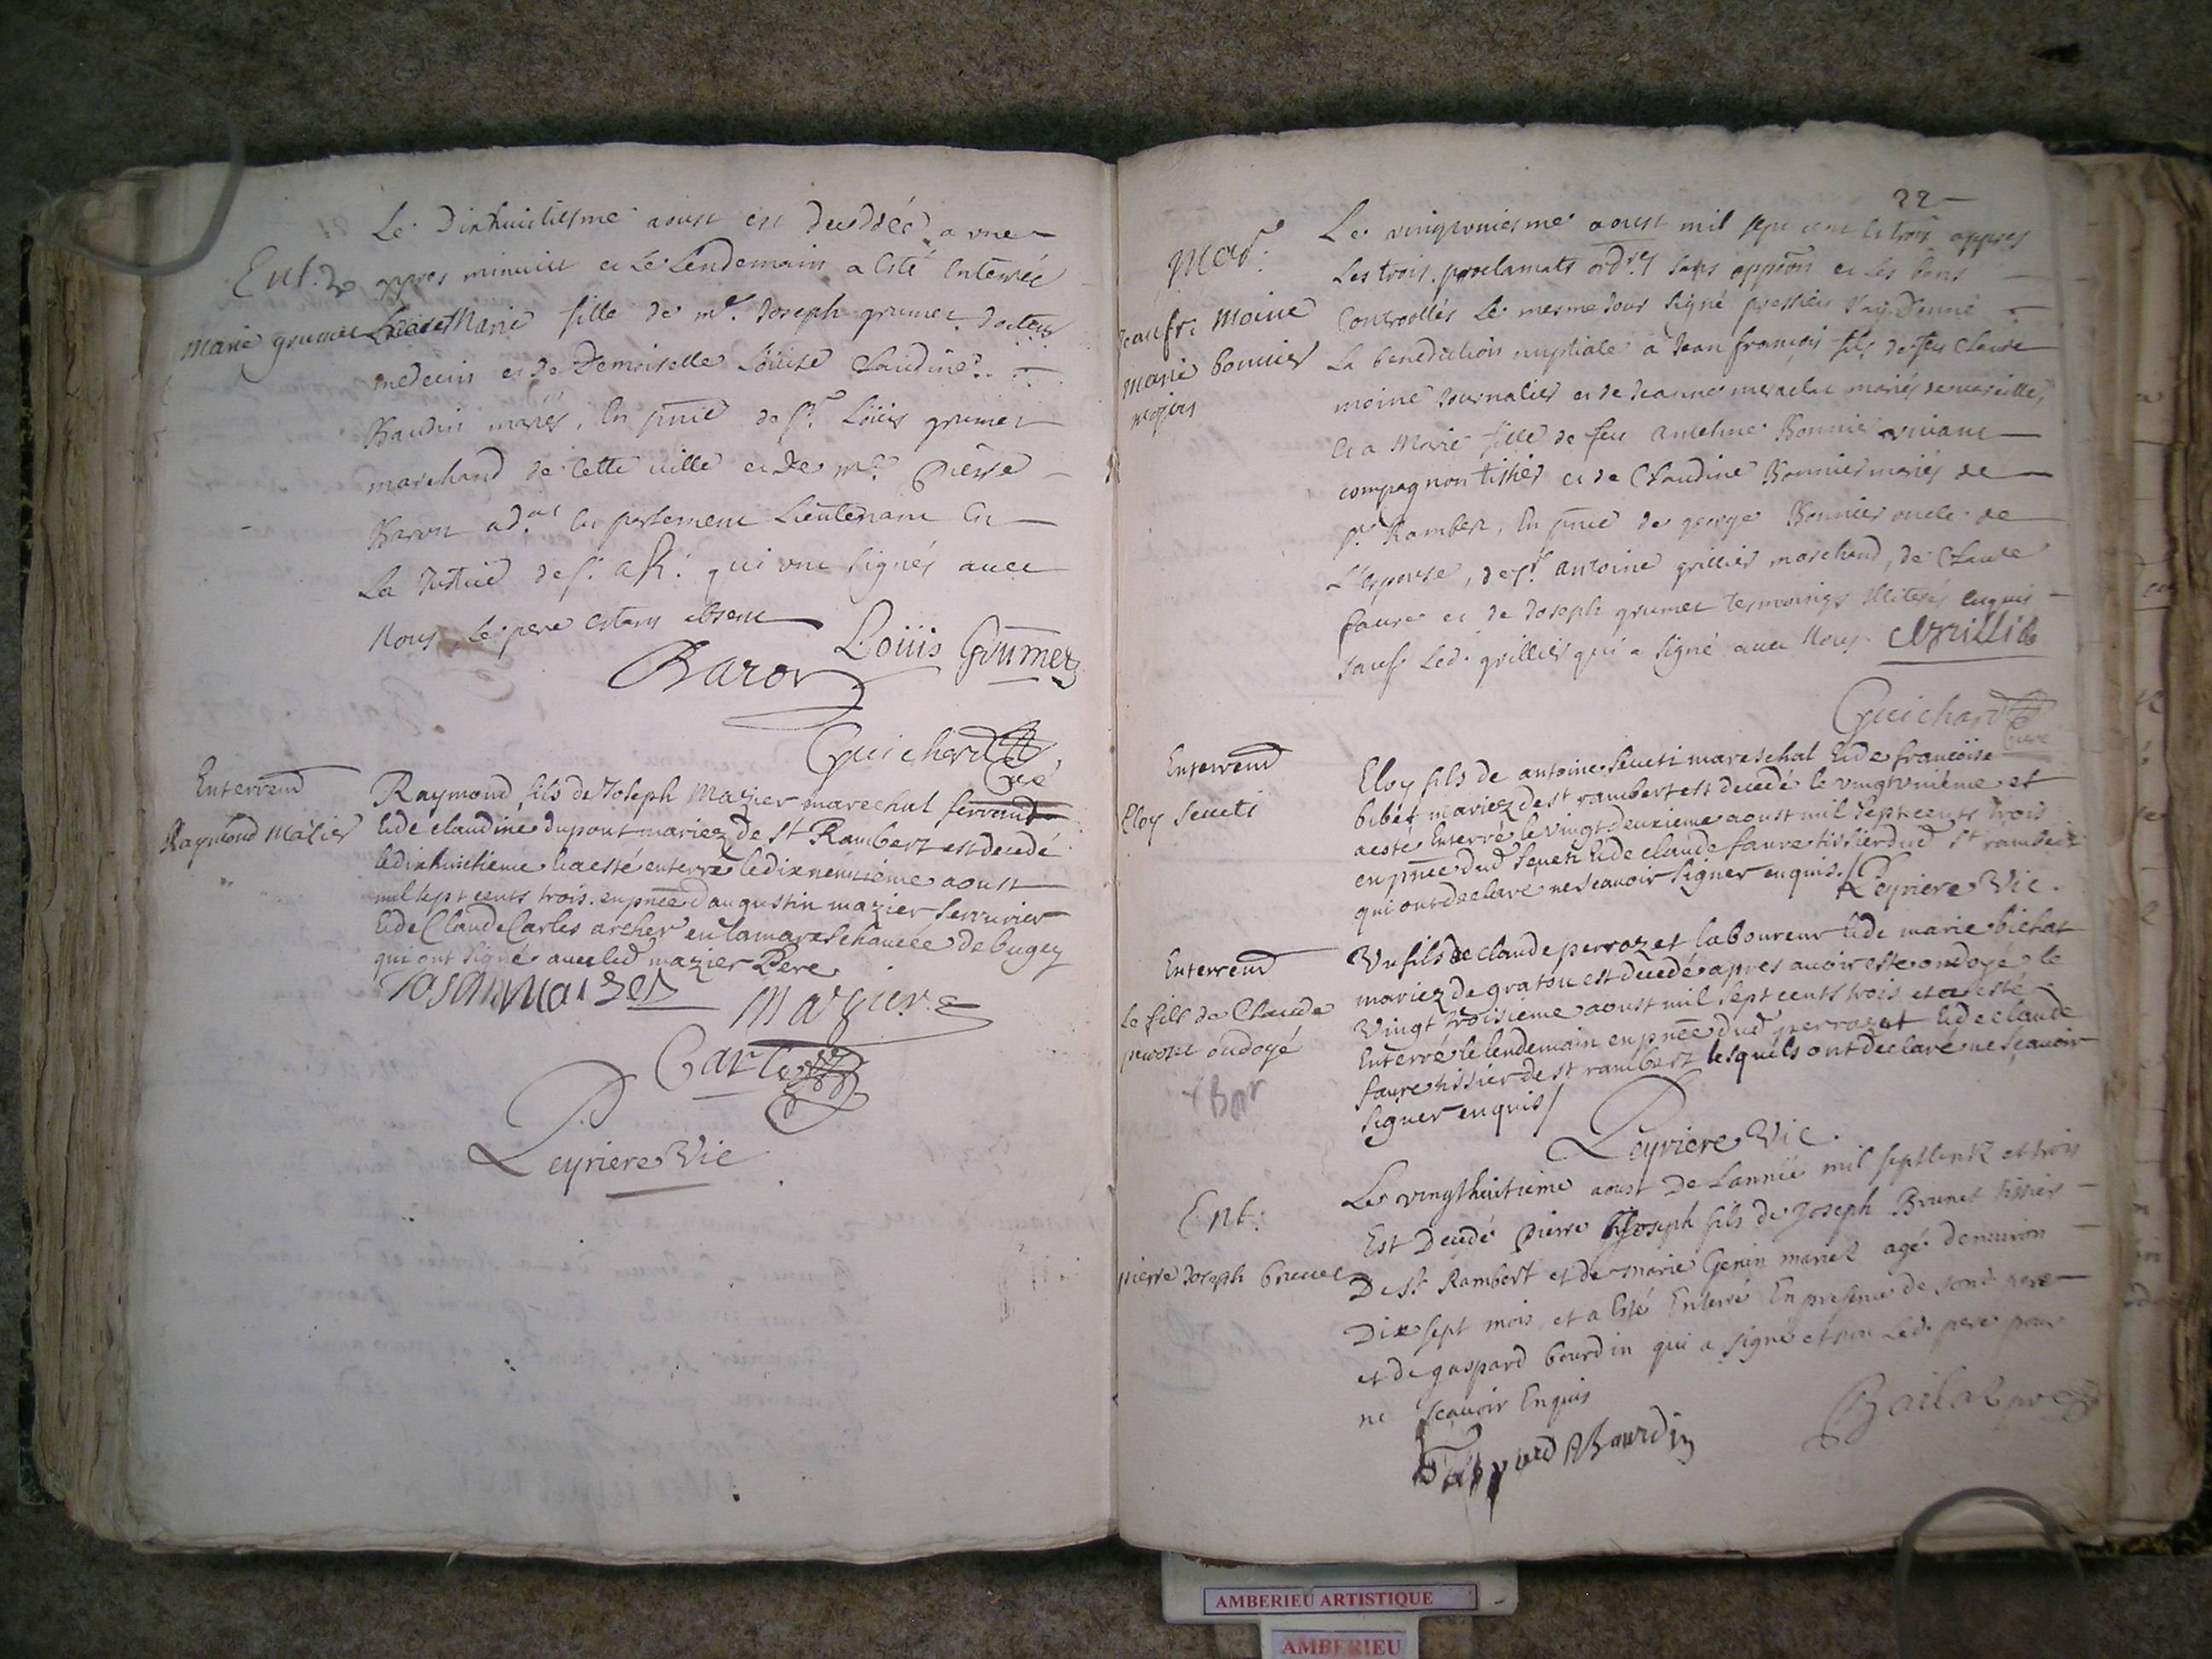 Le Dixhuictiesme aoust est decedée a une
Ent. de appres minuict et le lendemain a esté enterrée
Marie grumet Marie fille de mr. Joseph grumet docteur
medecin et de Demoiselle Loüise Claudine
Baudin mariés, en pnce de sr. Loüis grumet
marchand de cette ville et de mre. Pierre
Baron adat. en parlement Lieutenant en
La Justice de st. Rt. qui ont signés avec
Nous, le pere estant absent
Loüis Grumet
Baron
Guichard
Curé
Enterremt
Raymond Mazier
Raymond fils de Joseph Mazier marechal ferrand
et de claudine dupont mariez de st Rambert est decedé
le dixhuictieme et a esté enterré le dixneuvieme aoust
mil sept cents trois. en pnce d'augustin mazier serrurier
et de Claude Carles archer en la mareschaucée de bugey
qui ont signé avec led mazier Pere
Mazier
Carles
Peyriere Vic
22
Mar.
Jean fr. Moine
Marie bonnier
Le vingtuniesme aoust mil sept cent et trois appres
Les trois proclamats ordres sans oppoon et les bans
Controollés le mesme jour signé pressieu j'ay Donné
La benediction nuptiale à Jean françois fils de feu Claude
moine journalier et de Jeanne mariés de
Et a Marie fille de feu Antelme Bonnier vivant
compagnon tissier et de Claudine Bonnier mariés de
st. Rambert, en pnce de george Bonnier oncle de
L'espouse, de sr. Antoine grillier marchand, de Claude
faure et de Joseph grumet tesmoings illiterés enquis
sauf led. grillier qui a signé avec Nous. Grillier
Guichard
Curé
Enterremt
Eloy Seveti
Eloy fils de antoine Seveti mareschal et de francoise
bibet mariez de st rambert est decedé le vingtunième et
a esté enterré le vingtdeuxieme aoust mil sept cents trois
en pnce dud Seveti et de claude faure tissier dud st rambert
qui ont declaré ne scavoir signer enquis./ Peyriere Vic.
Enterremt
Le fils de Claude
perrozet ondoyé
+ Bar
Un fils de claude perrozet laboureur et de marie bichat
mariez de gratou est decedé apres avoir este ondoyé le
Vingt troisieme aoust mil sept cents trois et a esté
Enterré le lendemain en pnce dud perrozet et de claude
faure tissier de st rambert lesquels ont declare ne scavoir
signer enquis/
Peyriere Vic.
Ent.
pierre Joseph brunet
Le vingthuitieme aoust De Lannée mil septcentz et trois
Est Decedé Pierre Joseph fils de Joseph Brunet tissier
De St Rambert et de marie Genin mariez agé denviron
Dix sept mois, et a Esté Enterré En presence de sond pere
et de gaspard bourdin qui a signé et non led. pere pour
ne Scavoir Enquis
Gaspard Bourdin
AMBERIEU ARTISTIQUE
AMBERIEU